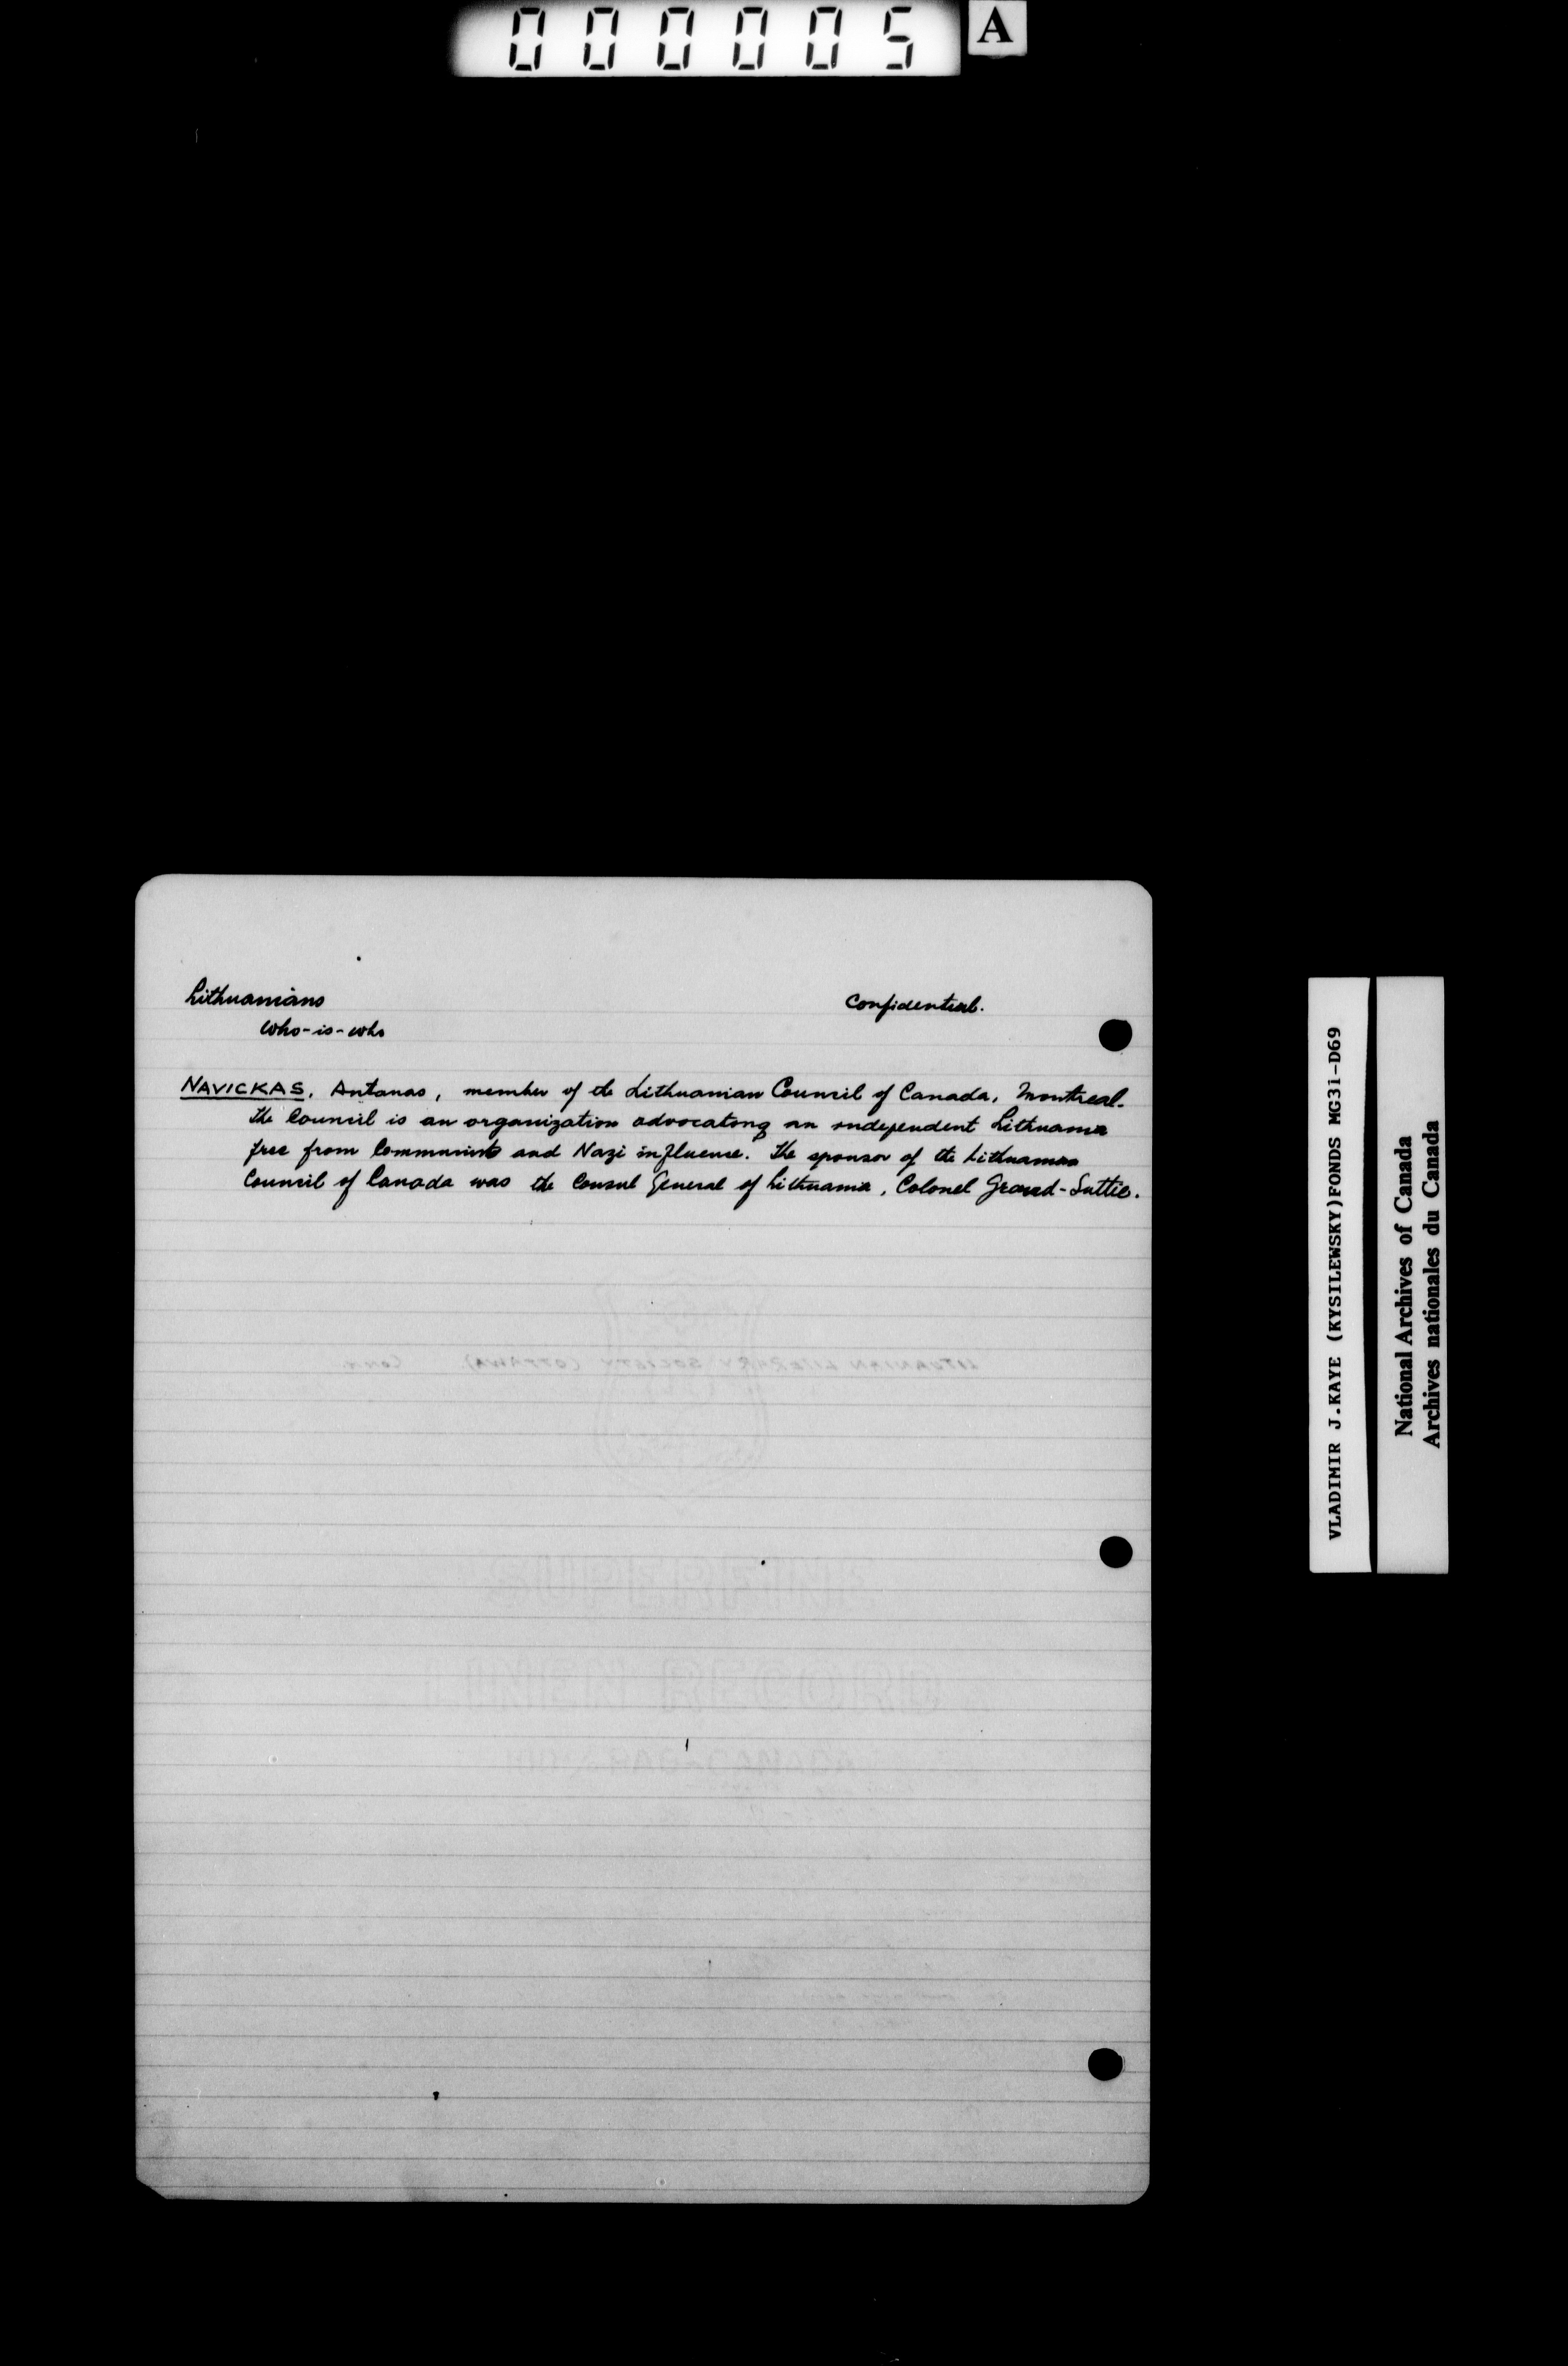 000005 A
Lithuanians Confidential.
Who-is-who
NAVICKAS, Antanas, member of the Lithuanian Council of Canada, Montreal.
The Council is an organization advocating an independent Lithuania
free from Communist and Nazi influence. The sponsor of the Lithuanian
Council of Canada was the Consul General of Lithuania, Colonel Grant-Suttie.
LITUANIAN LITERARY SOCIETY (OTTAWA).
SUPERFINE
LINEN RECORD
VLADIMIR J.KAYE (KYSILEWSKY)FONDS MG31-D69
National Archives of Canada
Archives nationales du Canada